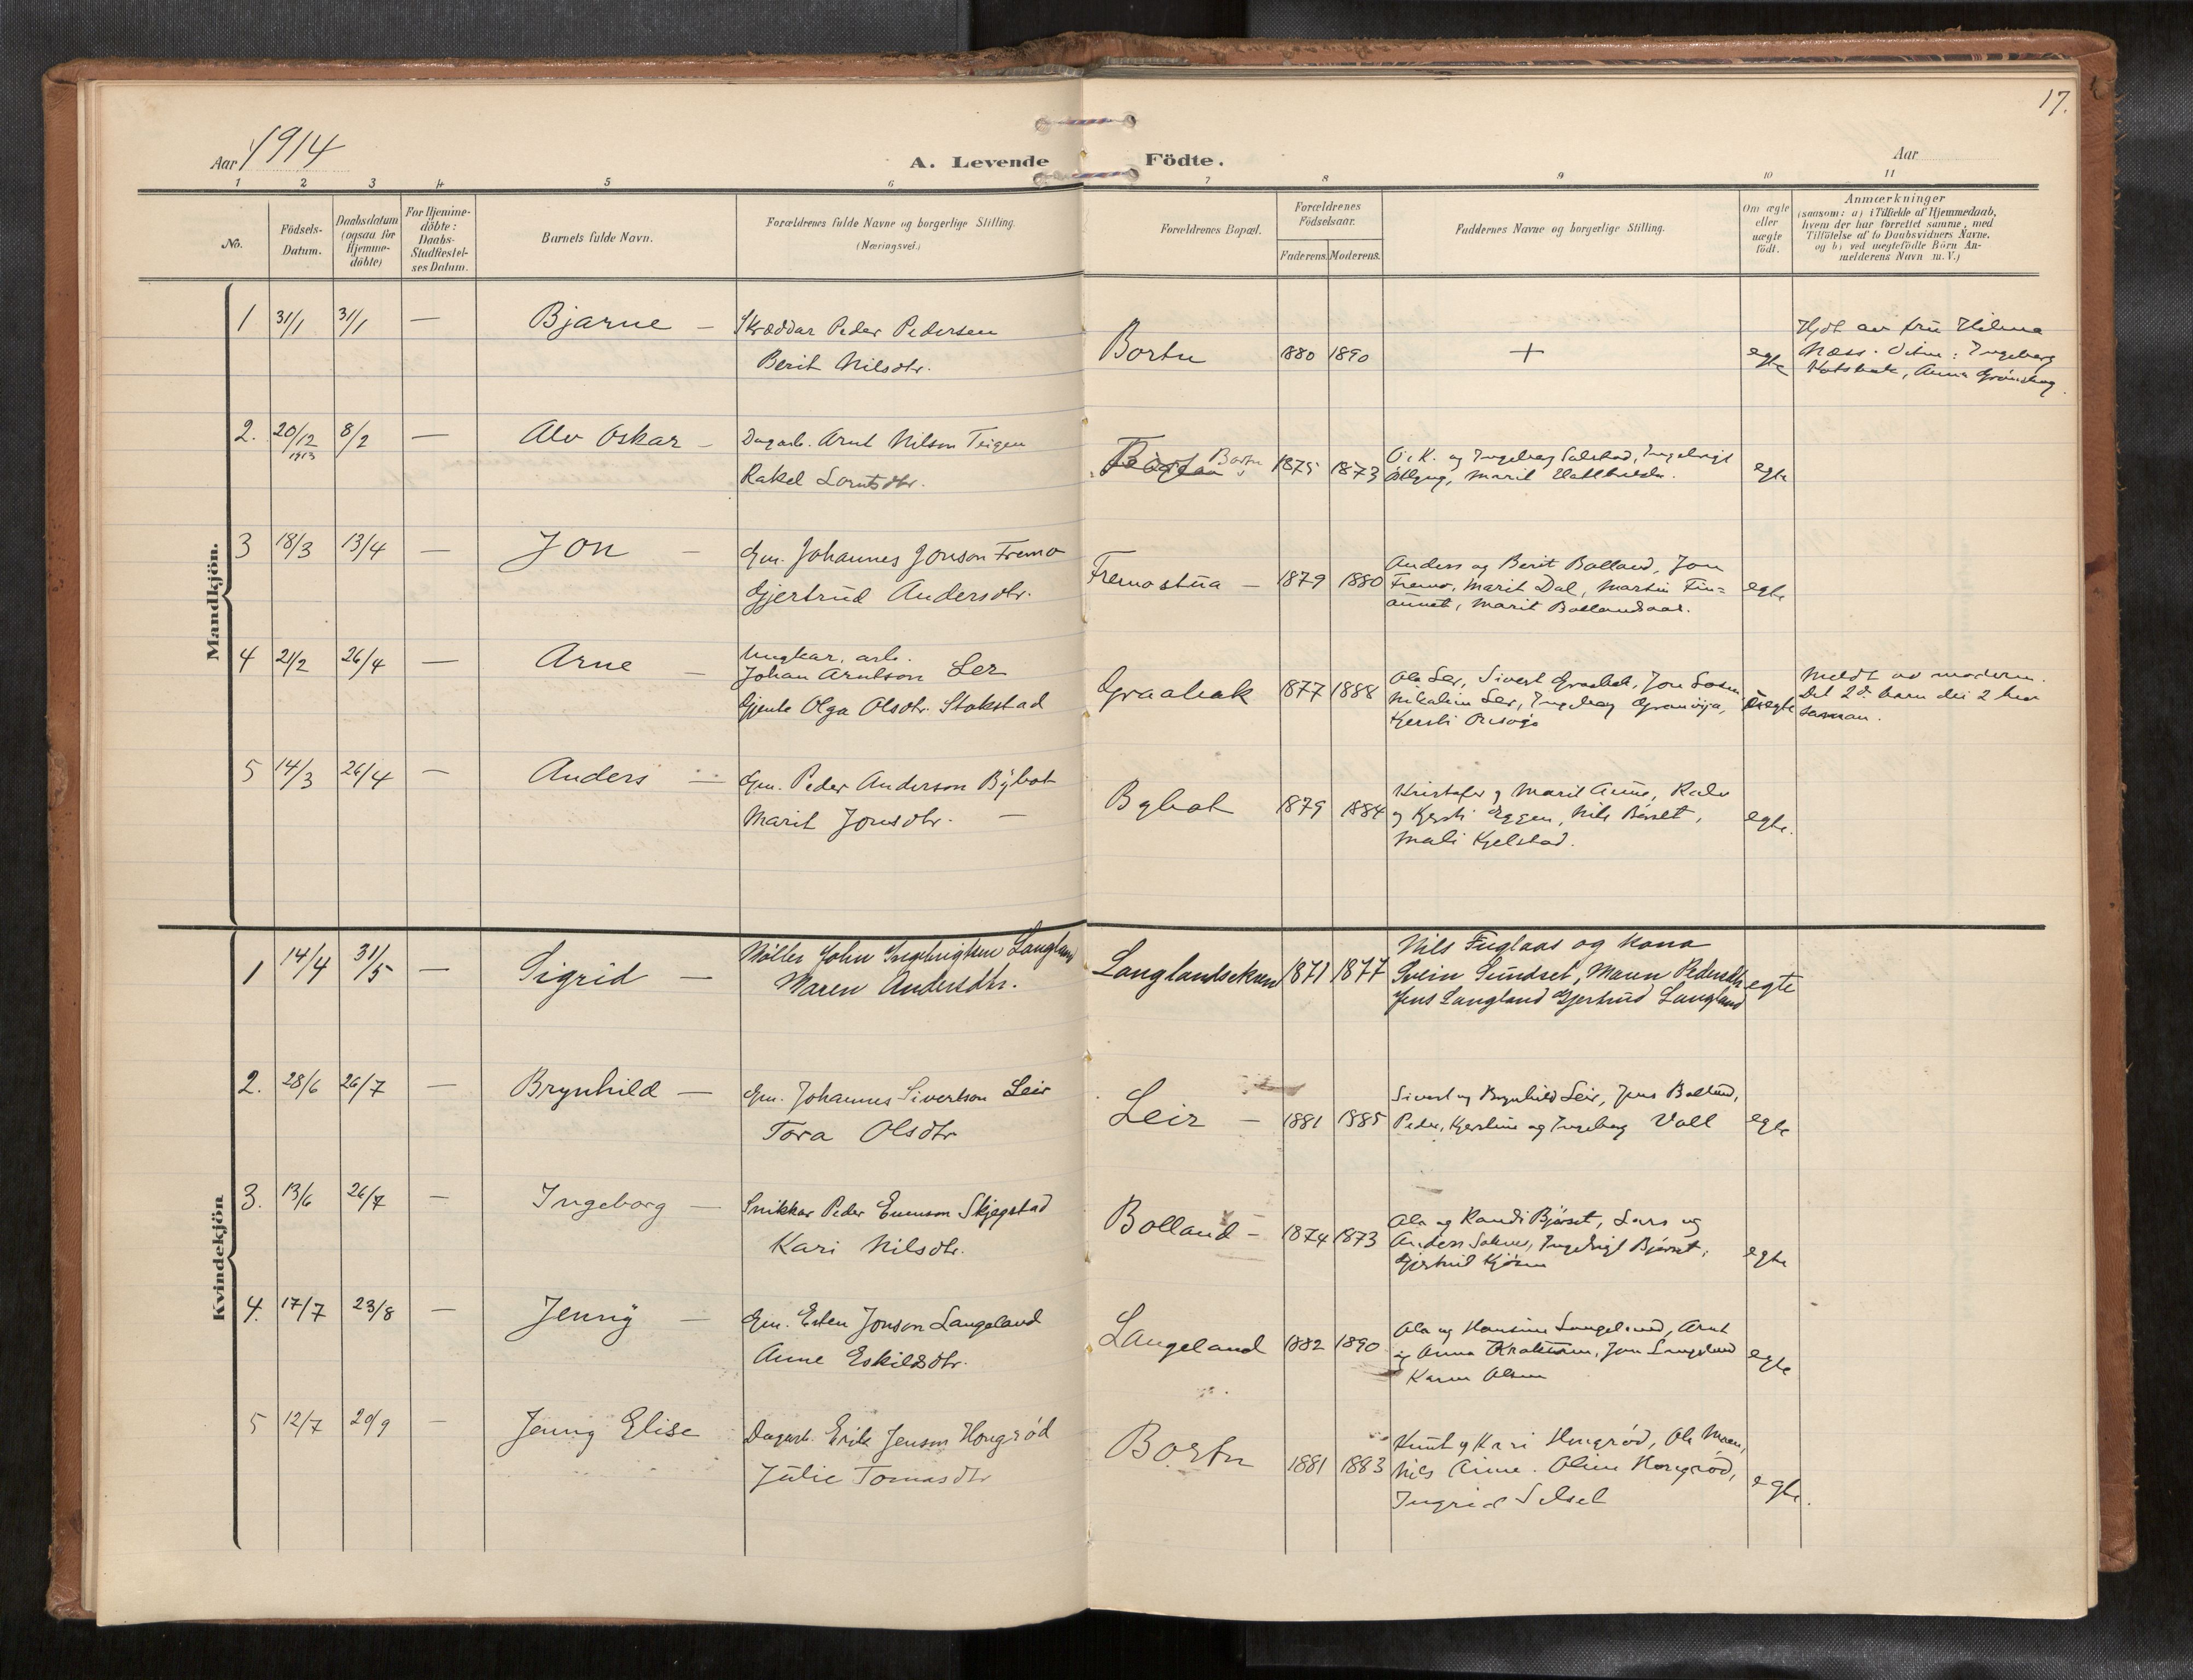 17.
Aar 1914
A. Levende Födte.
Aar
1 2 3 4 5 6 7 8 9 10 11
No.
Födsels-
Datum.
Daabsdatum
(ogsaa for
Hjemme-
döbte)
For Hjemme-
döbte:
Daabs-
Stadfæstel-
ses Datum.
Barnets fulde Navn.
Forældrenes fulde Navne og borgerlige Stilling.
(Næringsvei.)
Forældrenes Bopæl.
Forældrenes
Födselsaar.
Faderens. Moderens.
Faddernes Navne og borgerlige Stilling.
Om ægte
eller
uægte
födt.
Anmærkninger
(saasom: a) i Tilfælde af Hjemmedaab,
hvem der har forrettet samme, med
Tilföielse af to Daabsvidners Navne.
og b) ved uægtefödte Börn An-
melderens Navn m. V.)
Mandkjön.
1 31/1 31/1 — Bjarne —
Skræddar Peder Pedersen
Berit Nilsdtr.
Bortn 1880 1890 + egte
Hjdt av fru Hilma
Næss. Vitne: Ingeborg
Anna
2. 20/12 1913 8/2 — Alv Oskar —
Dagarb. Arnt Nilson Teigen
Rakel Lorntsdtr.
Bortn 1875 1873
O. K. og Ingeborg Ingebrigt
Marit
egte
3 18/3 13/4 — Jon —
Gm. Johannes Jonson Fremo
Gjertrud Andersdtr.
Fremostua — 1879 1880
Anders og Berit Bolland, Jon
Fremo, Marit Dal, Martin Fin=
Marit Bollandsaas.
egte
4 21/2 26/4 — Arne —
Ungkar, arb.
Johan Arntson Ler
Gjente Olga Olsdtr. Stokstad
Graabak 1877 1888
Ola Ler, Sivert Graabak, Jon
Nikolina Ler, Ingeborg
Kjersti
uegte
Meldt av moderen.
Det 2d. barn dei 2 har
saman.
5 14/3 26/4 — Anders —
Gm. Peder Anderson Bybot
Marit Jonsdtr. —
Bybot 1879 1884
Kristofer og Marit
og Kjersti Eggen, Nils
Mali Kjelstad.
egte.
Kvindekjön
1 14/4 31/5 — Sigrid —
Møller John Ingebrigtsen Langland
Maren Andersdtr.
1871 1877
Nils Fuglaas og kona
Svein Sundset, Maren Pedersdtr
Jens Langland Gjertrud Langland
egte
2. 28/6 26/7 — Brynhild —
Gm. Johannes Sivertson Leir
Tora Olsdtr
Leir — 1881 1885
Sivert og Brynhild Leir, Jens
Peder, Kjerstine og Ingeborg Voll
egte
3. 13/6 26/7 — Ingeborg —
Snikkar Peder Evenson Skjegstad
Kari Nilsdtr.
Bolland — 1874 1873
Ola og Randi Bjørset, Lars og
Anders Ingebrigt Bjørset,
Gjertrud
egte
4. 17/7 23/8 — Jenny —
Gm. Esten Jonson Langeland
Anne Eskildsdtr.
Langeland 1882 1890
Ola og Hansine Langeland, Arnt
og Anna Jon Langeland
Karen Olsen
egte
5 12/7 20/9 — Jenny Elise
Dagarb. Erik Jenson Hongrød
Julie Tomasdtr
Bortn 1881 1883
Knut og Kari Hongrød, Ole Moen,
Nils Oline Hongrød,
Ingrid Selset
egte.